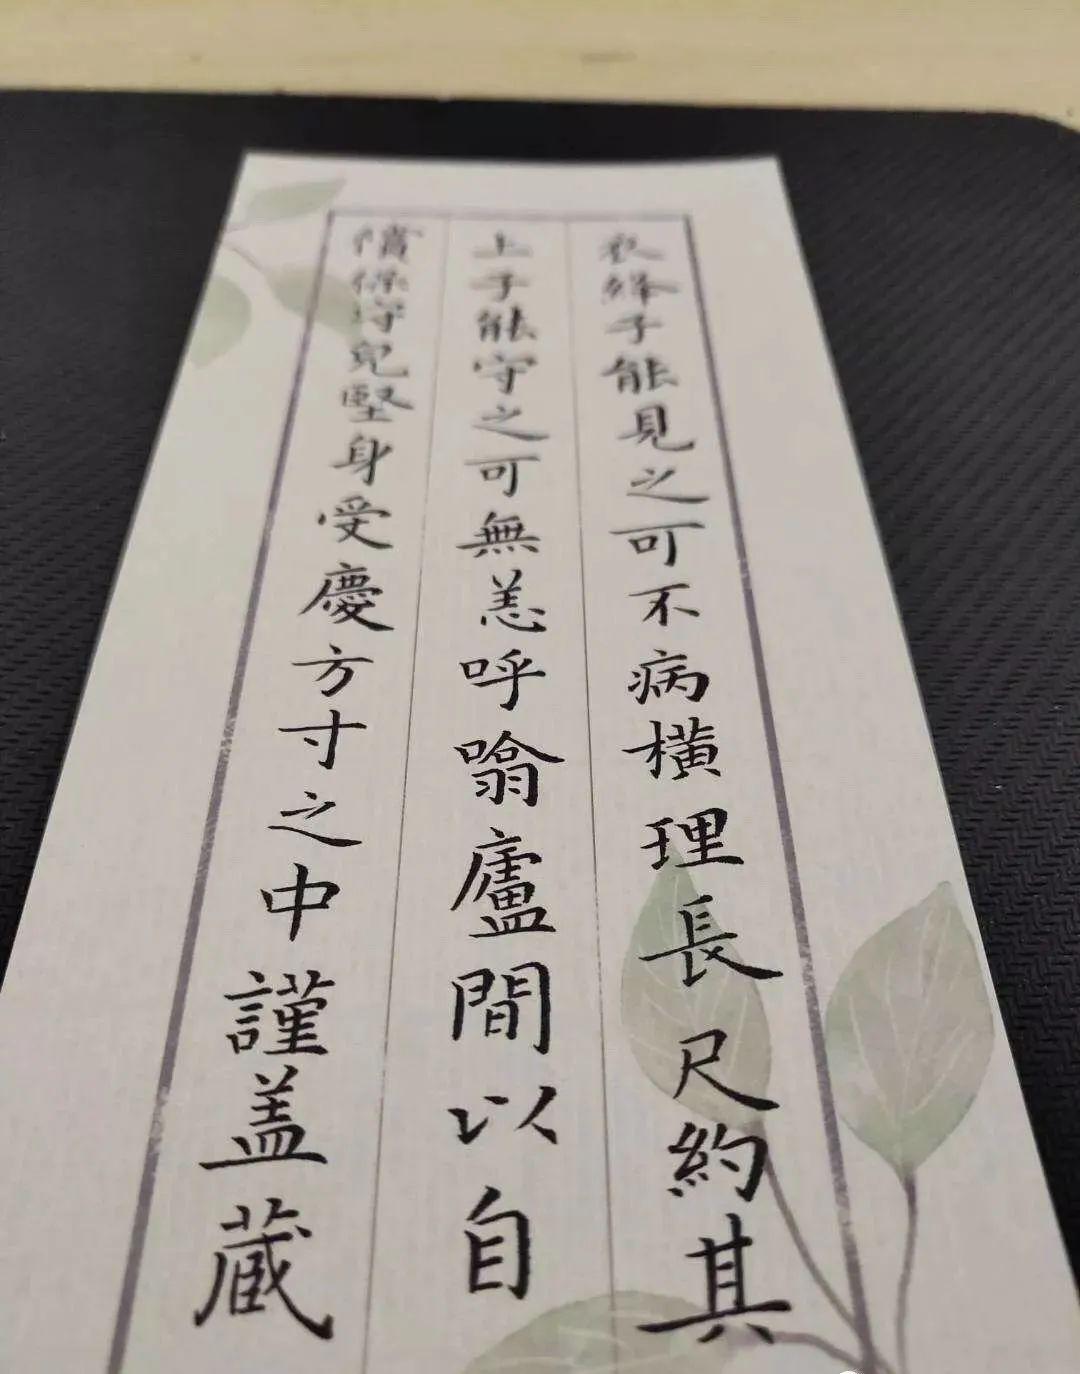 衣絳子能見之可不病橫理長尺約其
上子能守之可無恙呼噏廬間以自
償保守皃堅身受慶方寸之中謹盖藏